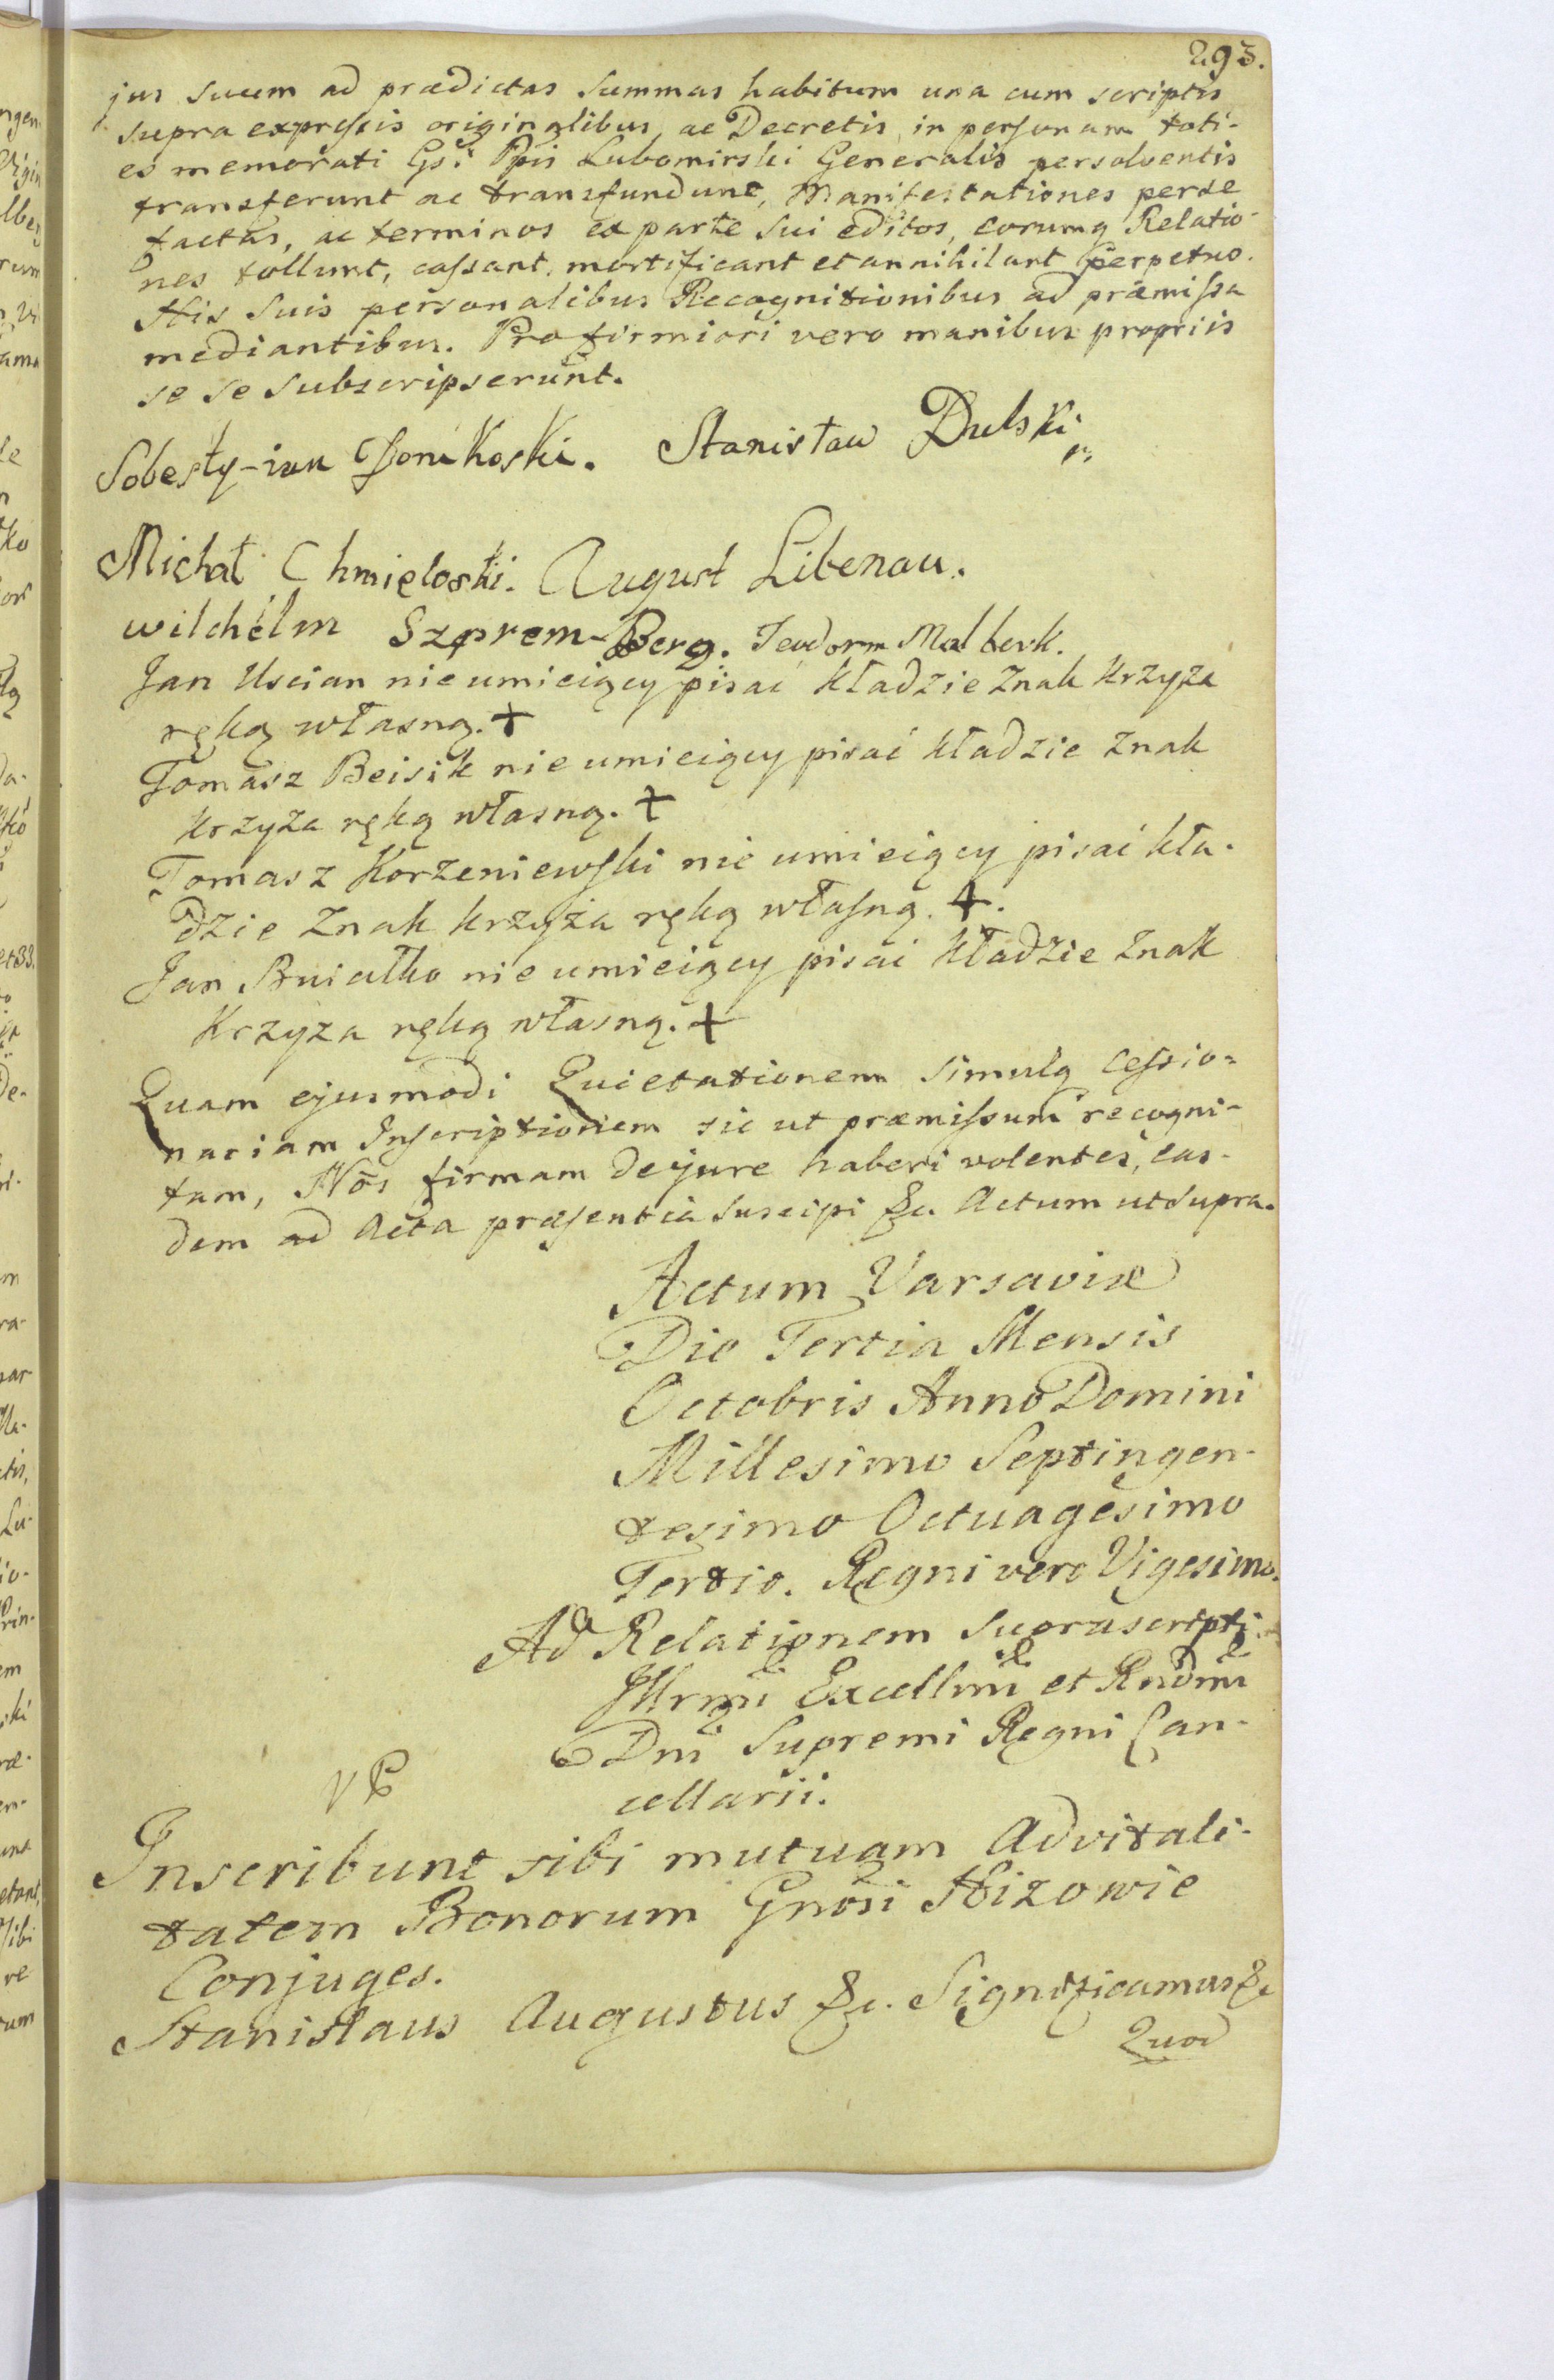 293.
jus suum ad prædictas Summas habitum una cum scriptis
supra expressis originalibus, ac Decretis in personam toti-
es memorati Gsi Ppis Lubomirski Generalis persolventis
transferunt ac transfundunt, Manifestationes per se
factas, ac terminos ex parte sui editos, eorumq Relatio-
nes tollunt, cassant, mortificant et annihilant perpetuo.
His suis personalibus Recognitionibus ad præmissa
mediantibus. Pro firmiori vero manibus propriis
se se subscripserunt.
Sobesty-ian Stanisław Dulski
Michał Chmieloski. August Libenau.
wilchelm Szprem-Berg. Teodorm Malberk.
Jan Uscian nieumieiący pisać kładzie Znak Krzyża
ręką własną. +
Tomasz Beisik nieumieiący pisać kładzie Znak
Krzyża ręką własną. +
Tomasz Korzeniewski nie umieiący pisać kła-
dzie Znak krzyża ręką własną. +.
Jan Bniałko nieumieiący pisać kładzie Znak
Krzyża ręką własną. +
Quam ejusmodi Quietationem simulq cessio-
nariam Inscriptionem sic ut præmissum recogni-
tam, Nos firmam de jure haberi volentes, eas-
dem ad Acta præsentia suscipi &c. Actum ut supra.
Actum Varsaviæ
Die Tertia Mensis
Octobris Anno Domini
Millesimo Septingen-
tesimo Octuagesimo
Tertio. Regni vero Vigesimo.
Ad Relationem suprascripti
Illrmi Excellmi et Rndmi
Dni Supremi Regni Can-
cellarii.
Inscribunt sibi mutuam Advitali-
tatem Bonorum Gnosi Hizowie
Conjuges.
Stanislaus Augustus &c. Significamus &c
Quod